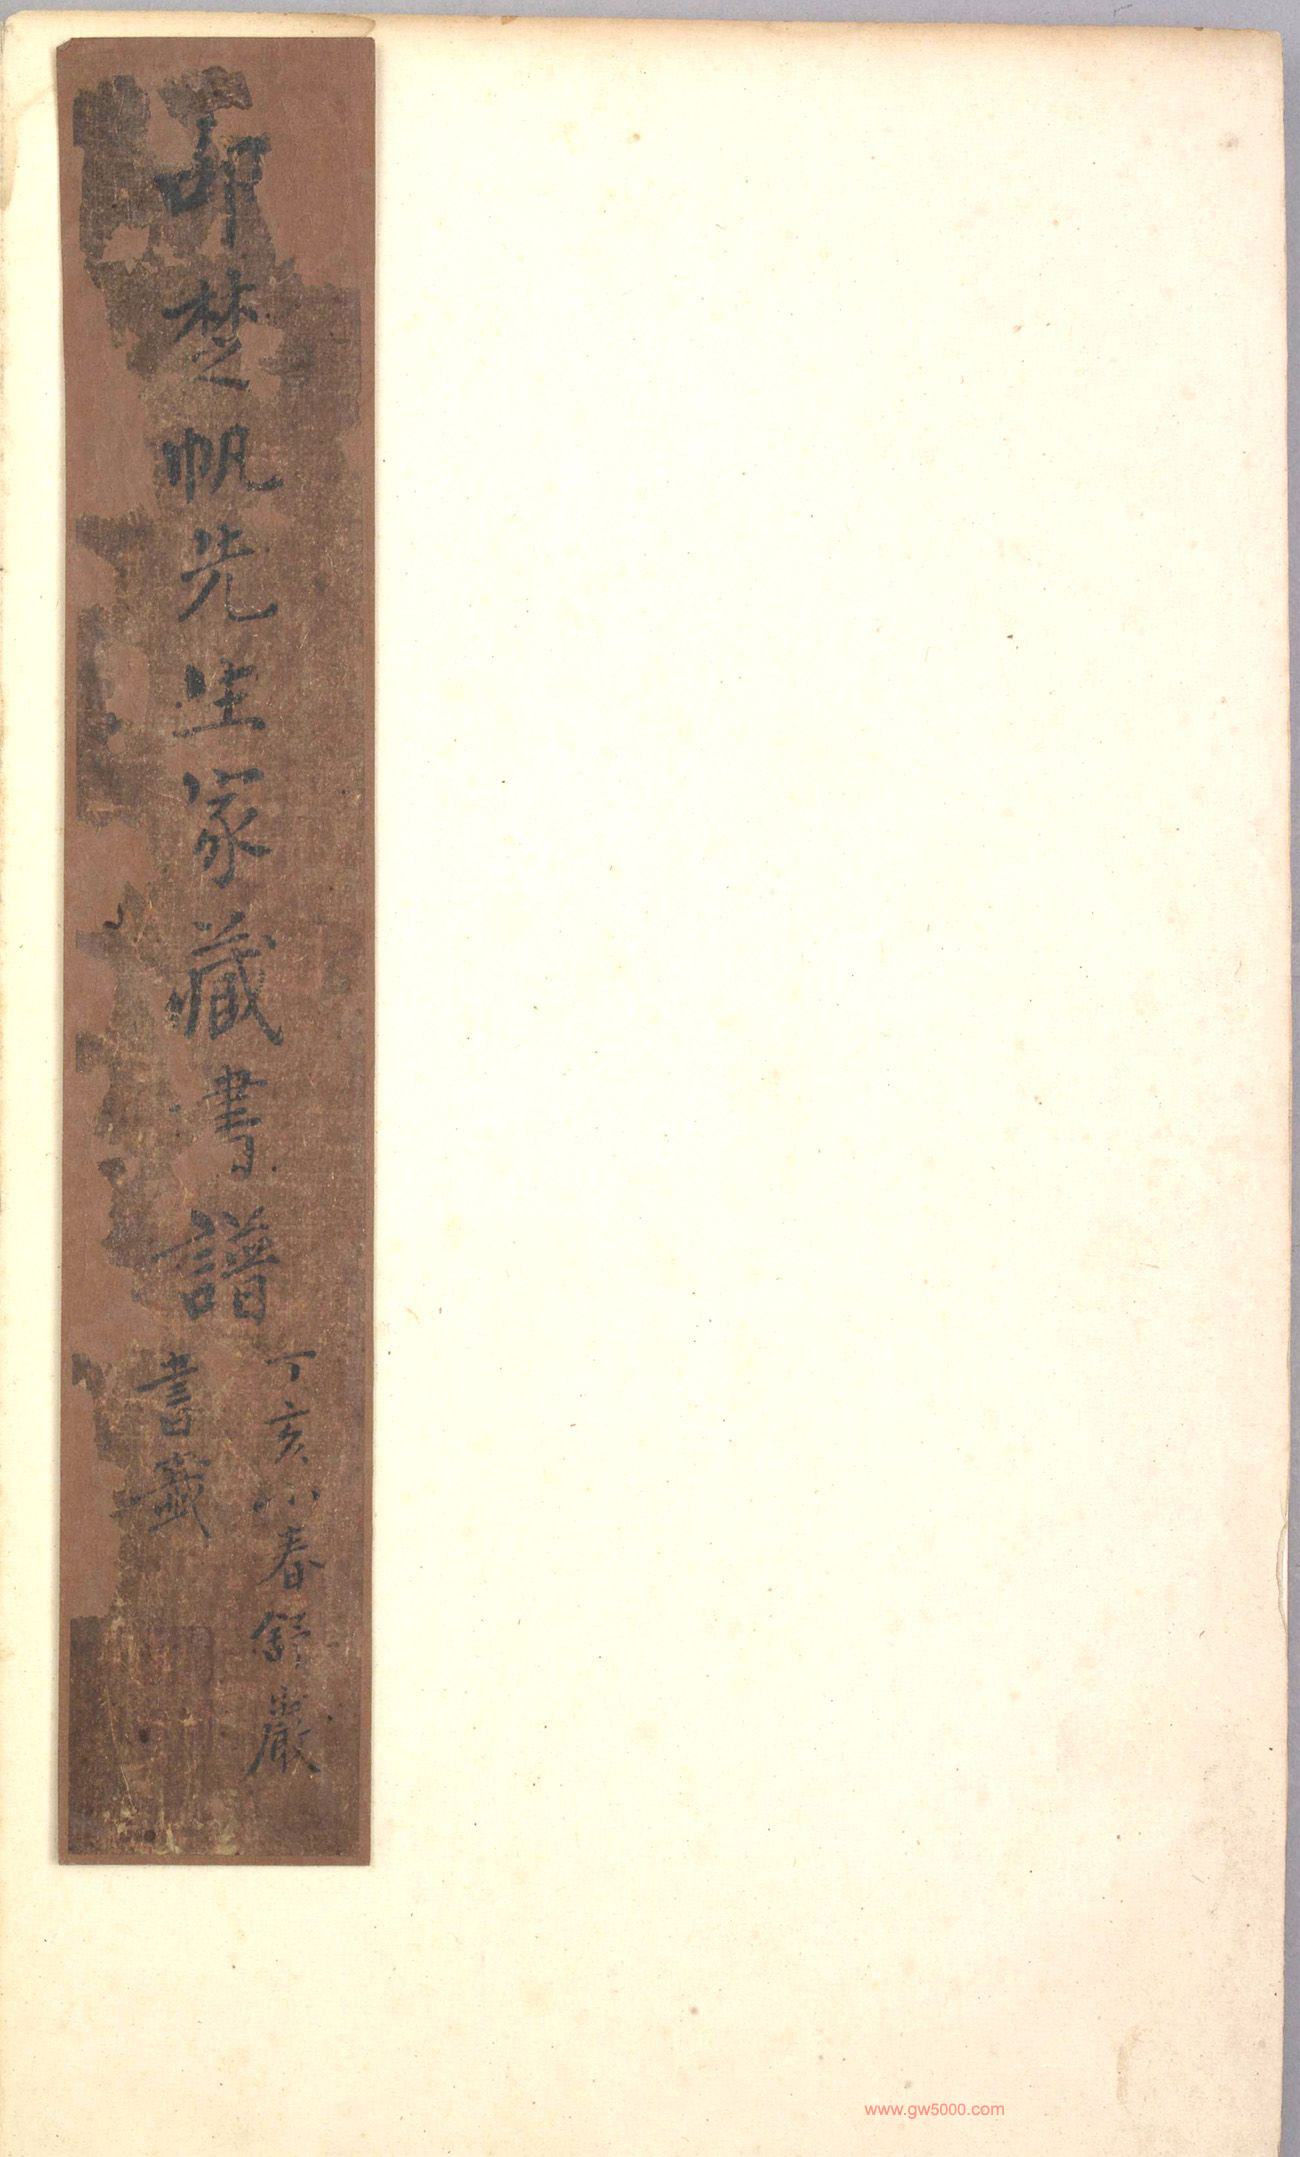 邵楚帆先生家藏書譜
丁亥小春舒嚴
書籤
www.gw5000.com